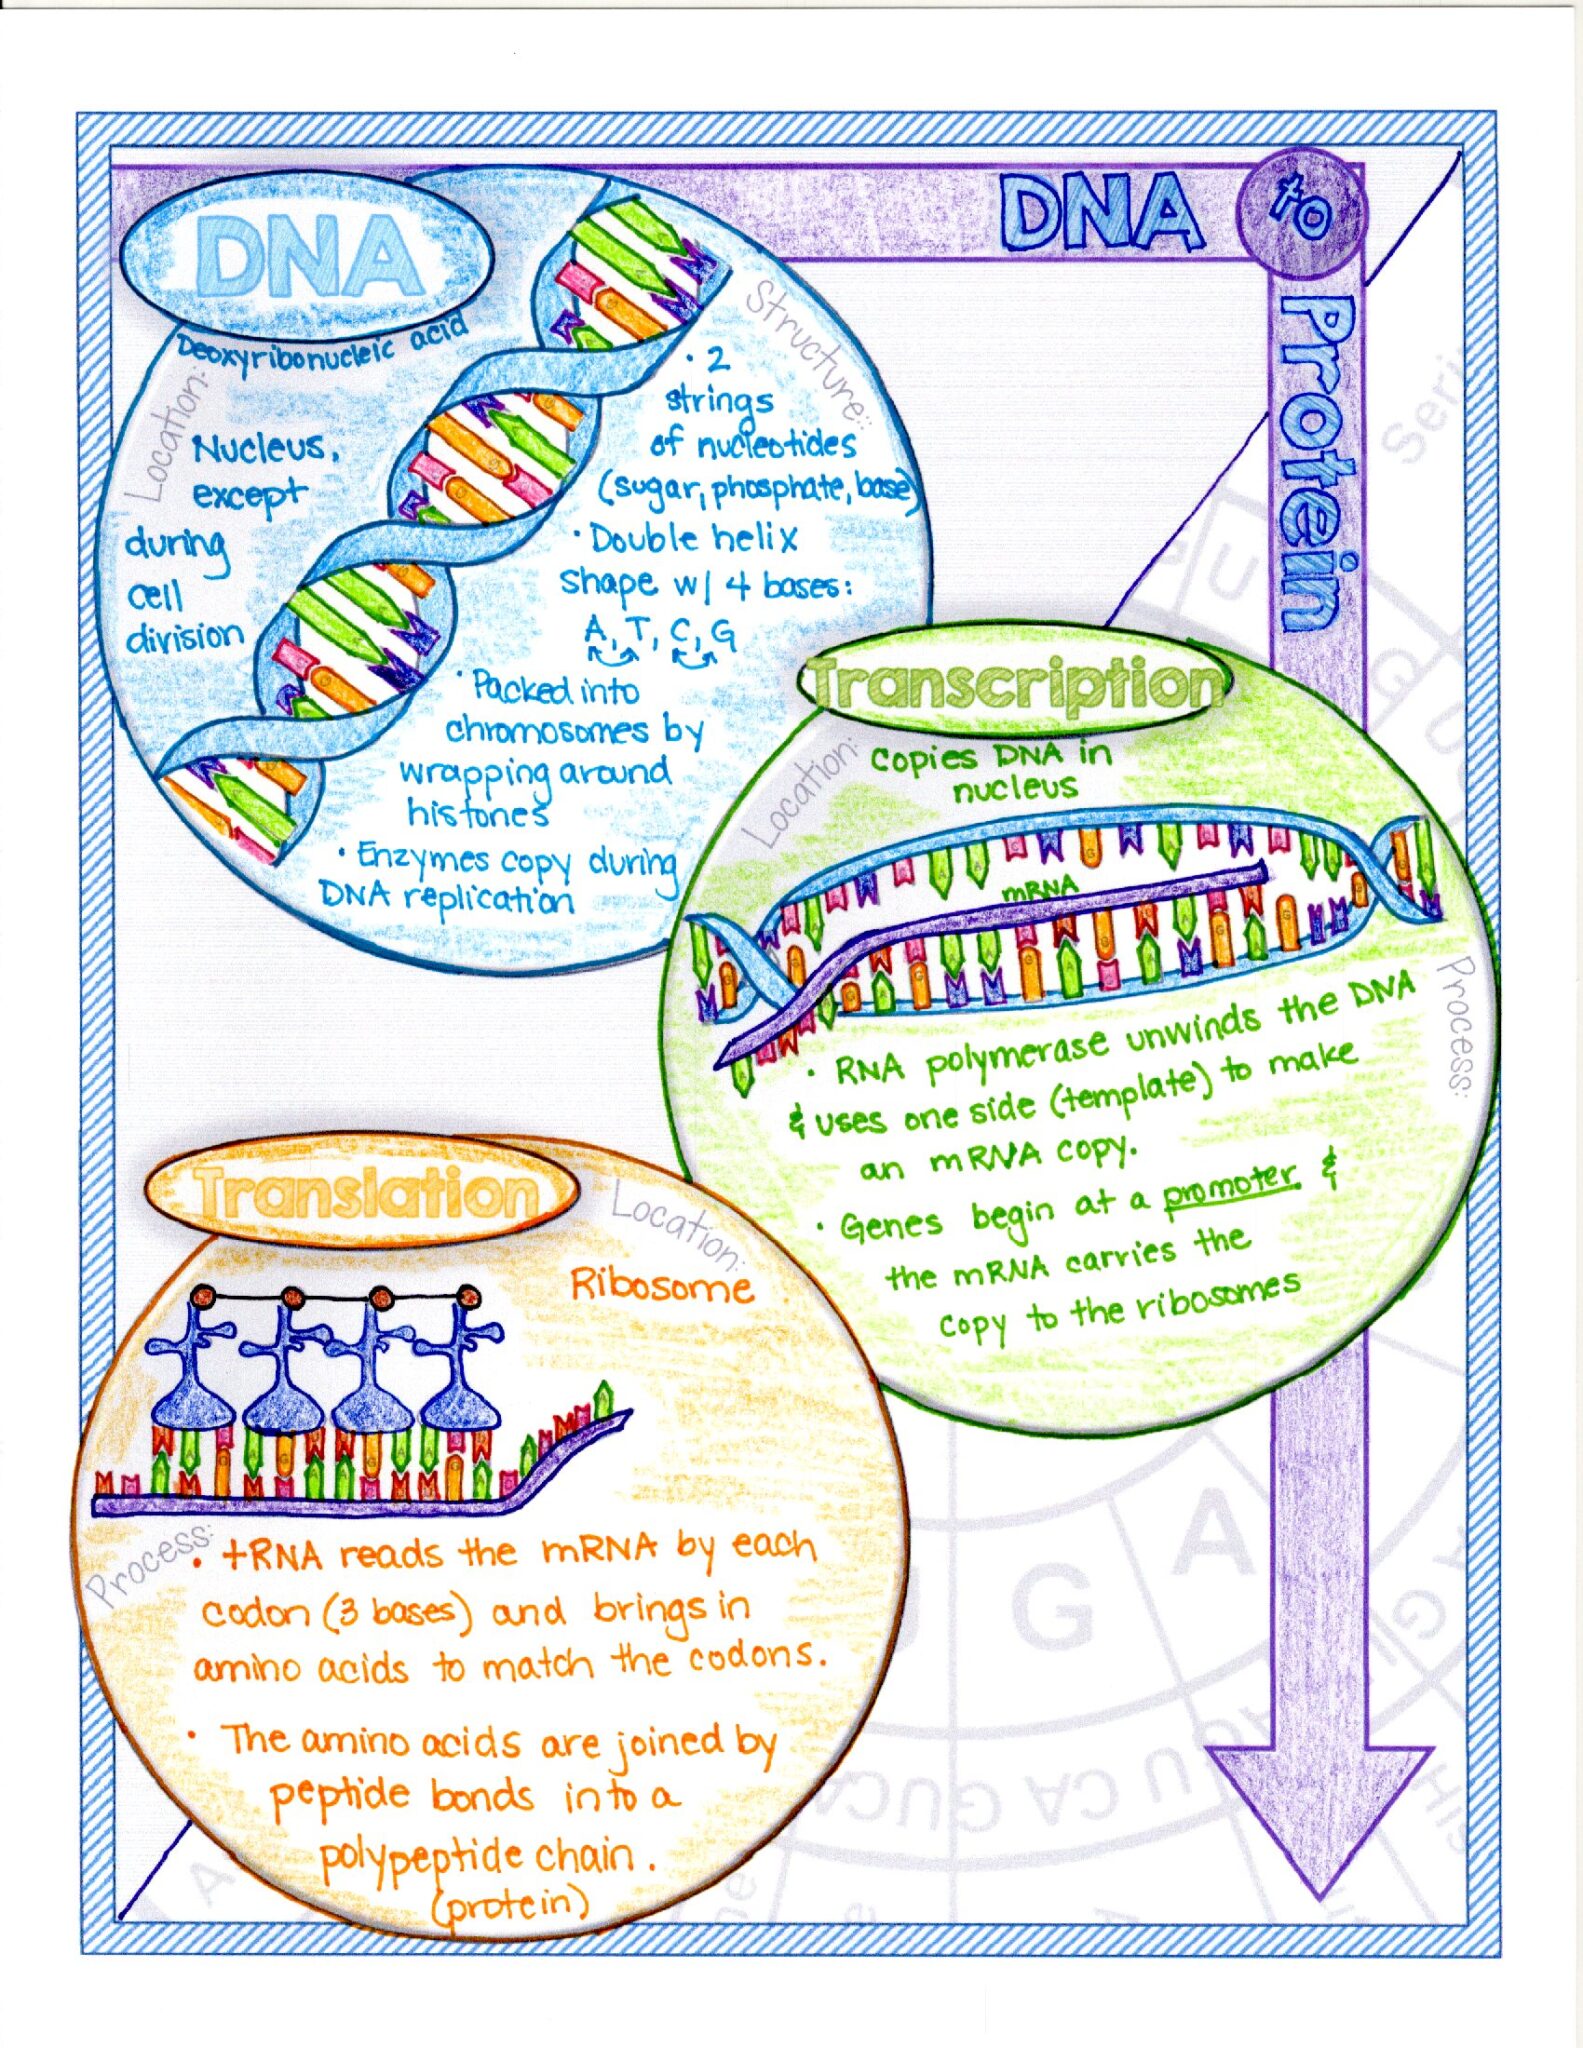 DNA to
Protein
DNA
Deoxyribonucleic acid
Location:
Nucleus,
except
during
cell
division
Structure:
• 2
strings
of nucleotides
(sugar, phosphate, base)
• Double helix
shape w/ 4 bases:
A, T, C, G
• Packed into
chromosomes by
wrapping around
histones
• Enzymes copy during
DNA replication
Transcription
Location:
copies DNA in
nucleus
mRNA
Process:
• RNA polymerase unwinds the DNA
& uses one side (template) to make
an mRNA copy.
• Genes begin at a promoter &
the mRNA carries the
copy to the ribosomes
Translation
Location:
Ribosome
Process:
• tRNA reads the mRNA by each
codon (3 bases) and brings in
amino acids to match the codons.
• The amino acids are joined by
peptide bonds into a
polypeptide chain.
(protein)
G
A